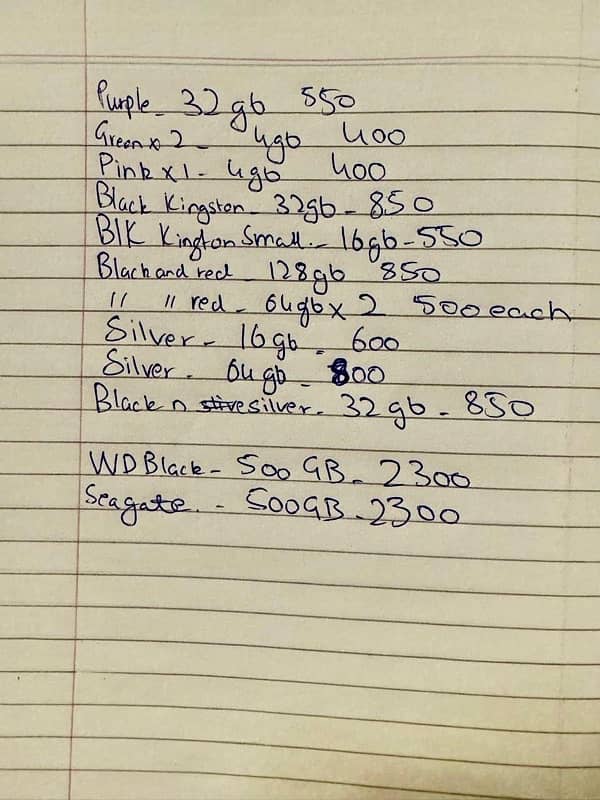 Purple - 32gb 550
Green x 2 - 4gb 400
Pink x 1 - 4gb 400
Black Kingston - 32gb - 850
Blk Kington Small. - 16gb - 550
Black and red 128gb 850
" " red - 64gb x 2 500 each
Silver - 16gb - 600
Silver - 64gb - 800
Black n silver - 32gb - 850
WD Black - 500 GB - 2300
Seagate. - 500GB - 2300